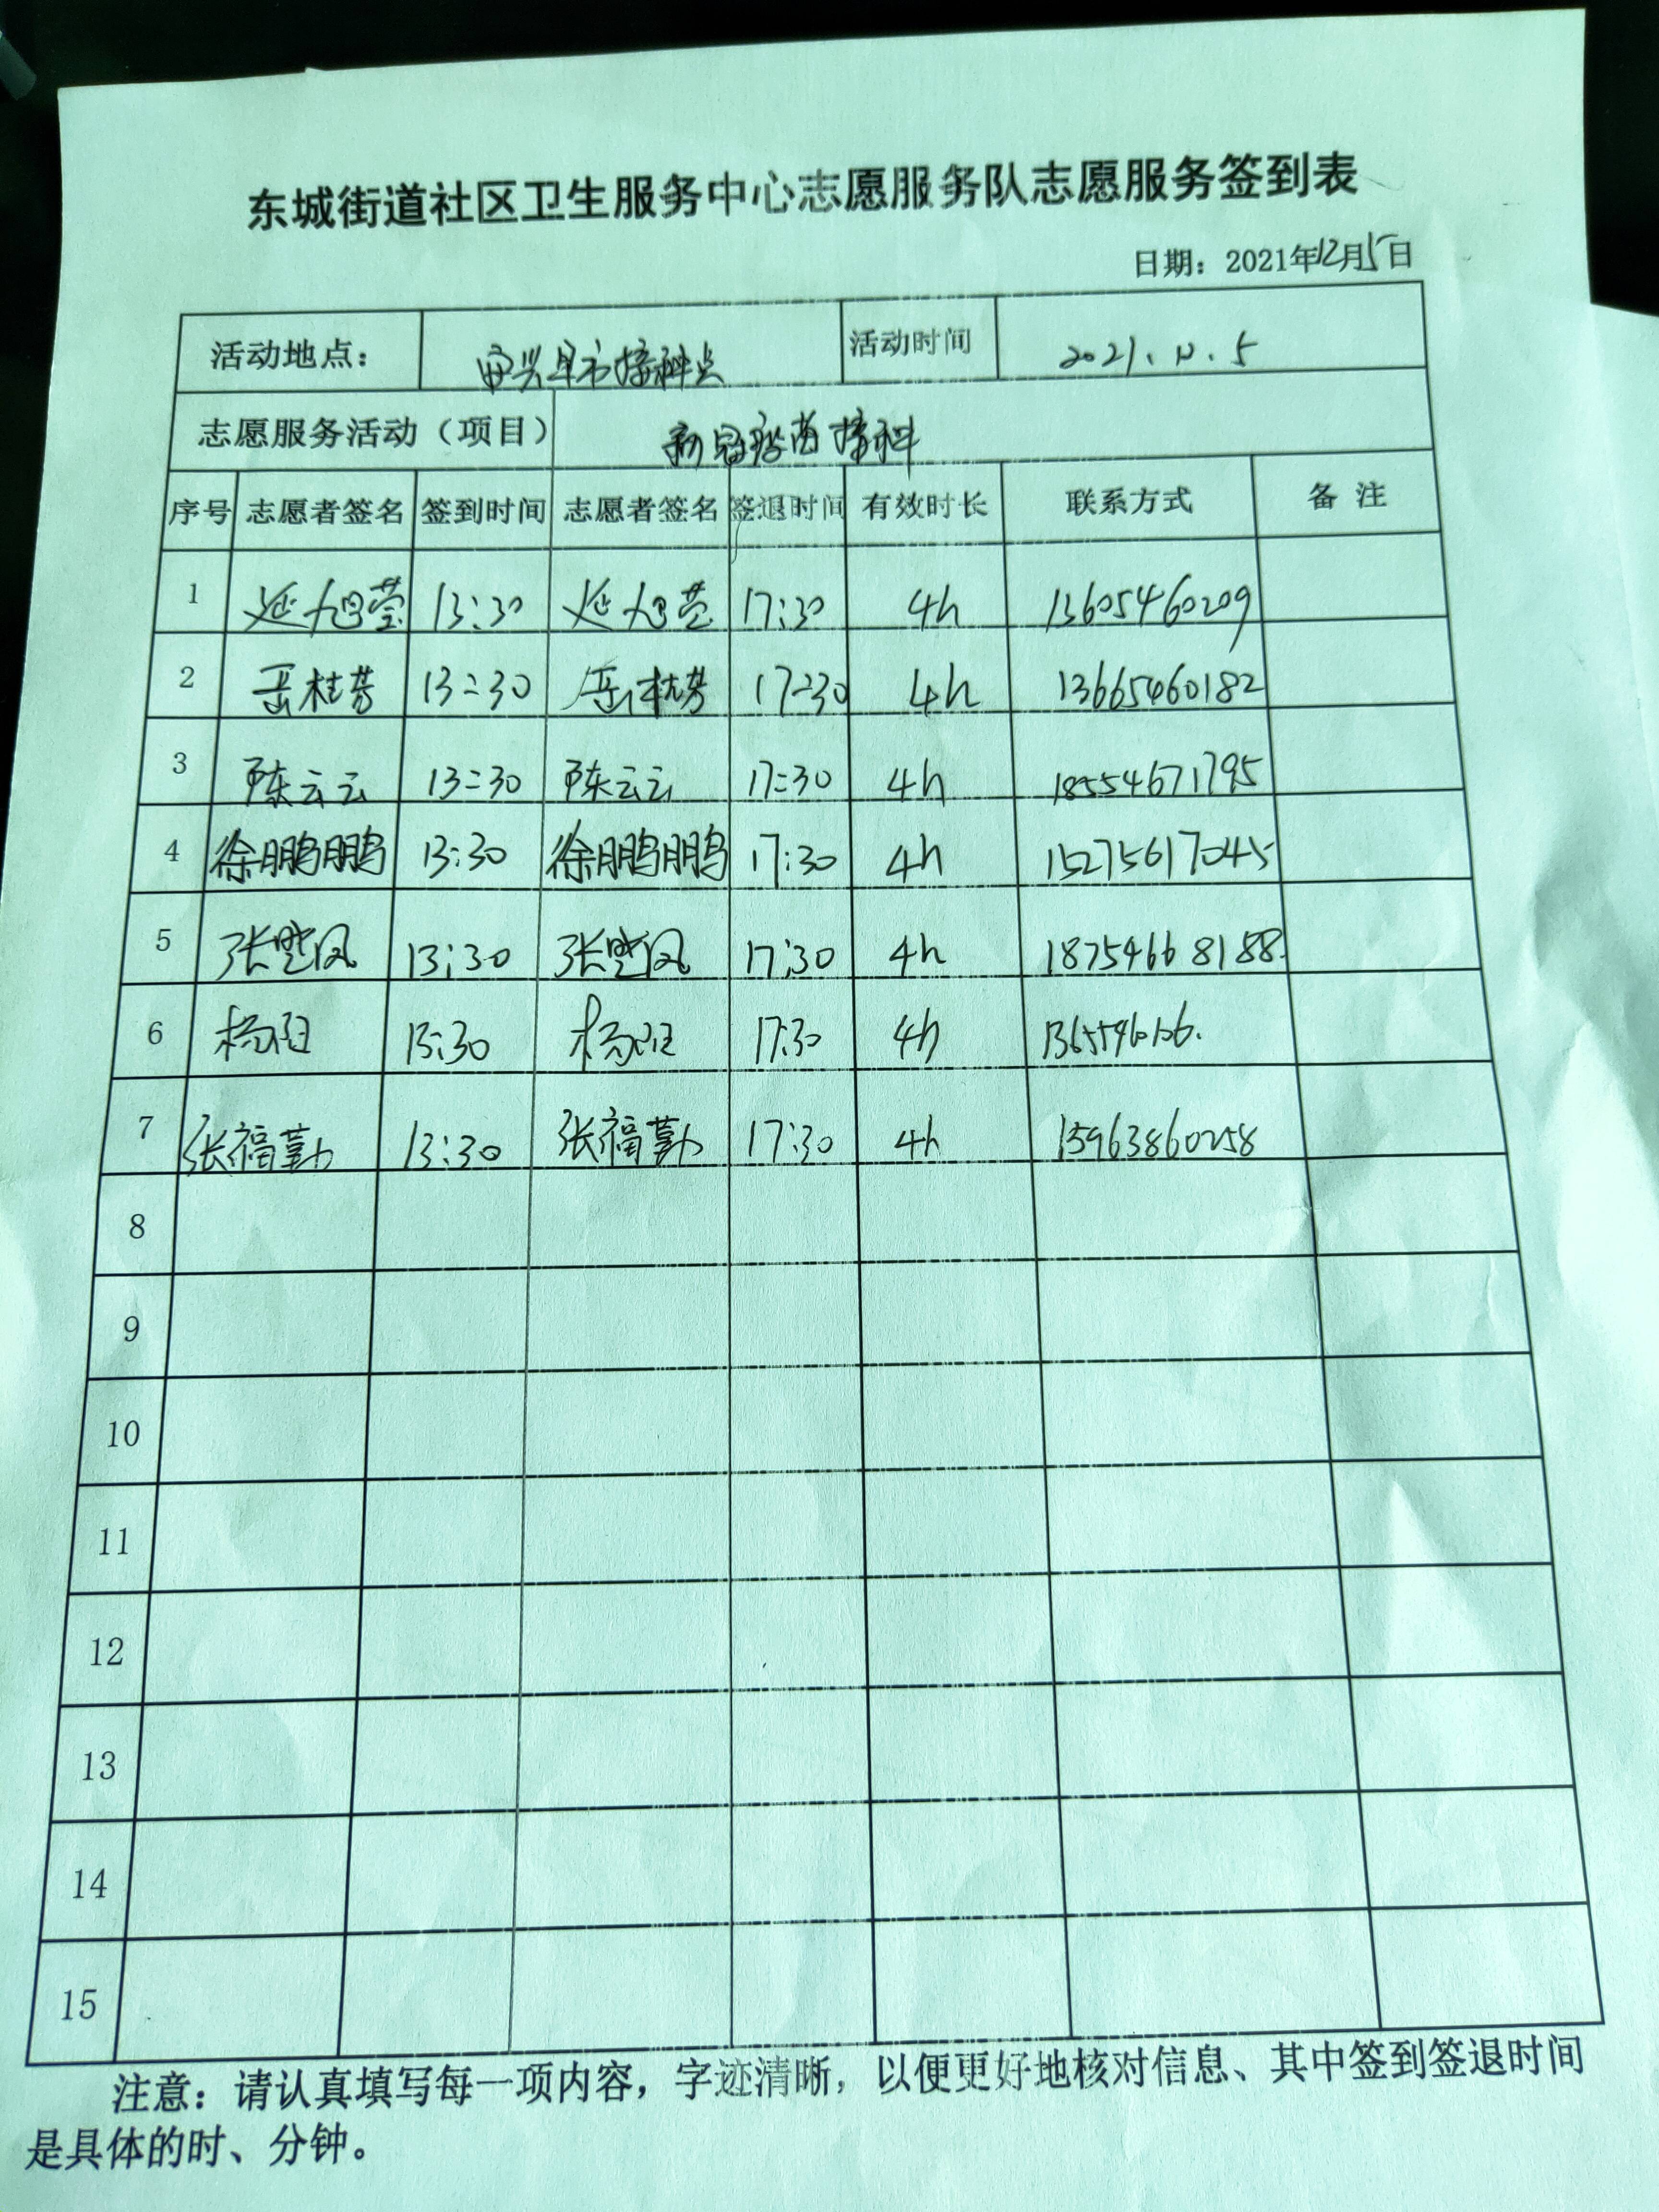 东城街道社区卫生服务中心志愿服务队志愿服务签到表
日期：2021年12月5日
活动地点： 早市接种点 活动时间 2021.12.5
志愿服务活动（项目） 新冠疫苗接种
序号 志愿者签名 签到时间 志愿者签名 签退时间 有效时长 联系方式 备注
1 延旭莹 13:30 延旭莹 17:30 4h 13605460209
2 岳桂芳 13:30 岳桂芳 17:30 4h 13665460182
3 陈云云 13:30 陈云云 17:30 4h 18554671795
4 徐鹏鹏 13:30 徐鹏鹏 17:30 4h 15275617045
5 张楚凤 13:30 张楚凤 17:30 4h 18754668188
6 杨阳 13:30 杨阳 17:30 4h
7 张福勤 13:30 张福勤 17:30 4h 15963860258
8
9
10
11
12
13
14
15
注意：请认真填写每一项内容，字迹清晰，以便更好地核对信息、其中签到签退时间
是具体的时、分钟。